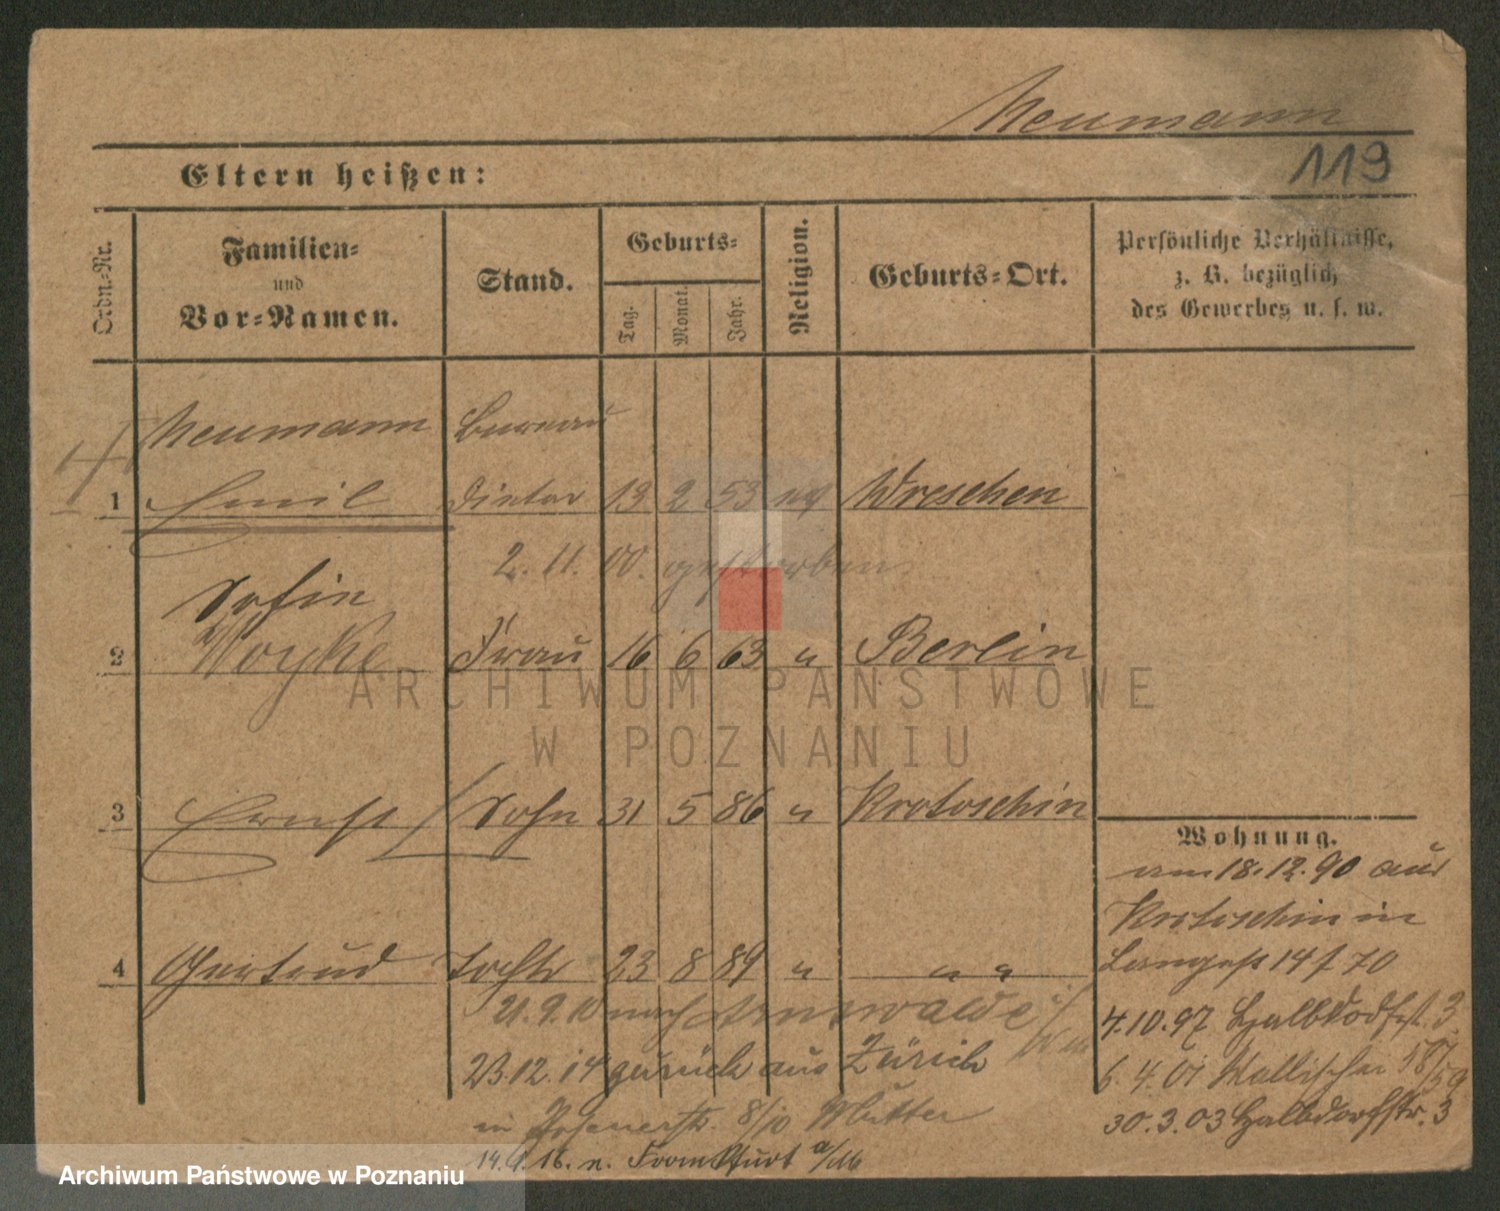 Neumann
119
Eltern heißen:
Ordn.-Nr.
Familien-
und
Vor-Namen.
Stand.
Geburts-
Tag.
Monat.
Jahr.
Religion.
Geburts-Ort.
Persönliche Verhältnisse,
z. B. bezüglich
des Gewerbes u. s. w.
Neumann Bureau
1 Emil Diätar 19 2 53 Wreschen
2. 11. 00. gestorben
Sofie
2 Woyke Frau 16 6 63 " Berlin
3 Ernst Sohn 31 5 86 " Krotoschin
4 Gertrud Tocht 23 8 89 " " "
21.9.10 nach Arnswalde
23.12.14 zurück aus Zürich
in Posenerstr. 8/10 Mutter
14.1.16. n. Frankfurt a/M
Wohnung.
am 18.12.90 aus
Krotoschin in
Langestr 14 / 70
4.10.97 Halbdorfstr. 3
6.4.01 Wallischei 58/59
30.3.03 Halbdorfstr. 3
ARCHIWUM PAŃSTWOWE
W POZNANIU
Archiwum Państwowe w Poznaniu